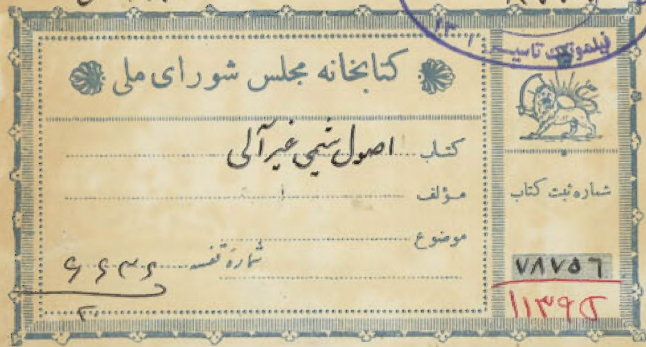 کتابخانه مجلس شورای ملی
کتاب اصول شیمی غیرآلی
مؤلف
موضوع
شماره قفسه ۶۶۳۶
شماره ثبت کتاب
۷۸۷۵۶